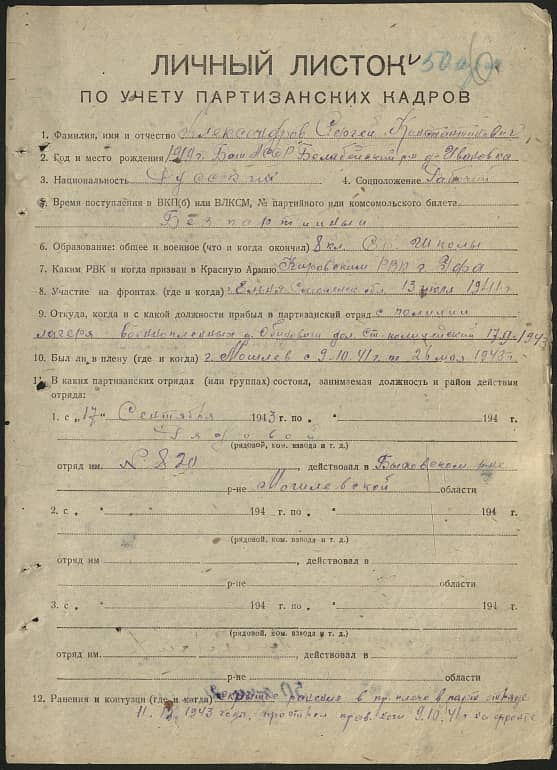 ЛИЧНЫЙ ЛИСТОК
ПО УЧЕТУ ПАРТИЗАНСКИХ КАДРОВ
1. Фамилия, имя и отчество Александров Сергей Константинович
2. Год и место рождения 1919 г. БашАССР Белебеевский р-н д. Ивановка
3. Национальность Русский 4. Соцположение Рабочий
5. Время поступления в ВКП(б) или ВЛКСМ, № партийного или комсомольского билета
Безпартийный
6. Образование: общее и военное (что и когда окончил) 8 кл. школы
7. Каким РВК и когда призван в Красную Армию Кировским РВК г. Уфа
8. Участие на фронтах (где и когда) г. Ельня Смоленск. обл. 13 июля 1941 г.
9. Откуда, когда и с какой должности прибыл в партизанский отряд с полиции
лагеря военнопленных д. 1943
10. Был ли в плену (где и когда) г. Могилев с 9.10.41 г. по мая 1943 г.
11. В каких партизанских отрядах (или группах) состоял, занимаемая должность и район действия
отряда:
1. с „17“ Сентября 1943 г. по „ “ 194 г.
Рядовой
(рядовой, ком. взвода и т. д.)
отряд им. № 820, действовал в Быховском р-не
р-не Могилевской области
2. с „ “ 194 г. по „ “ 194 г.
(рядовой, ком. взвода и т. д.)
отряд им. , действовал в
р-не области
3. с „ “ 194 г. по „ “ 194 г.
(рядовой, ком. взвода и т. д.)
отряд им. , действовал в
р-не области
12. Ранения и контузии (где и когда) ранение в пр. плечо в парт. отряде
11. 1943 года, прав. ноги 9.10.41 г. на фронте